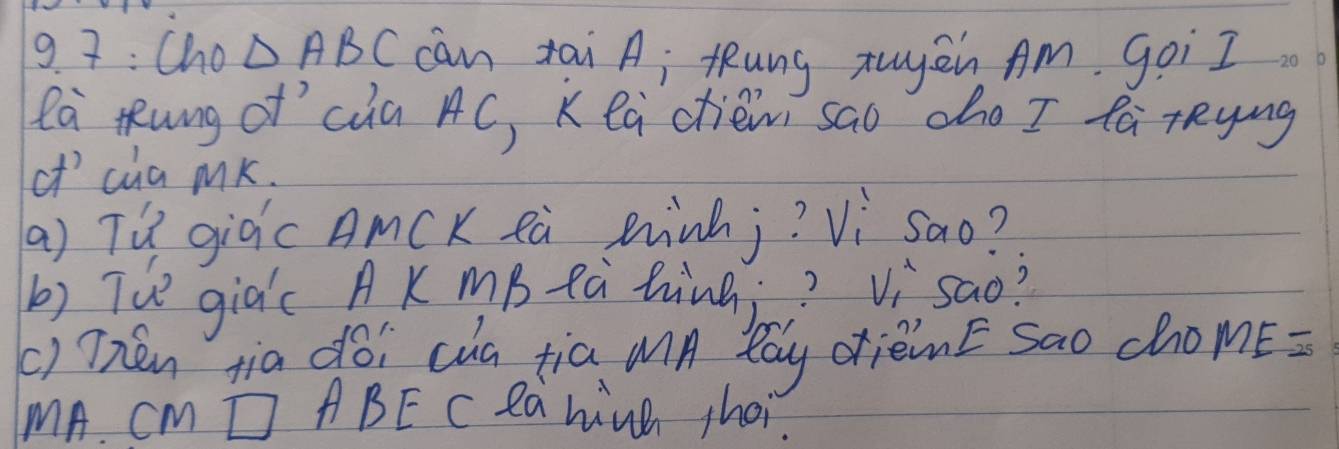 9.7: Cho Δ ABC cân tại A; trung tuyến AM. Gọi I
là trung đ' của AC, K là điểm sao cho I là trung
đ' của MK.
a) Tứ giác AMCK là hình j? Vì sao?
b) Tứ giác AKMB là hình j? Vì sao?
c) Trên tia đối của tia MA lấy điểm E sao cho ME =
MA. CM □ ABEC là hình thoi.